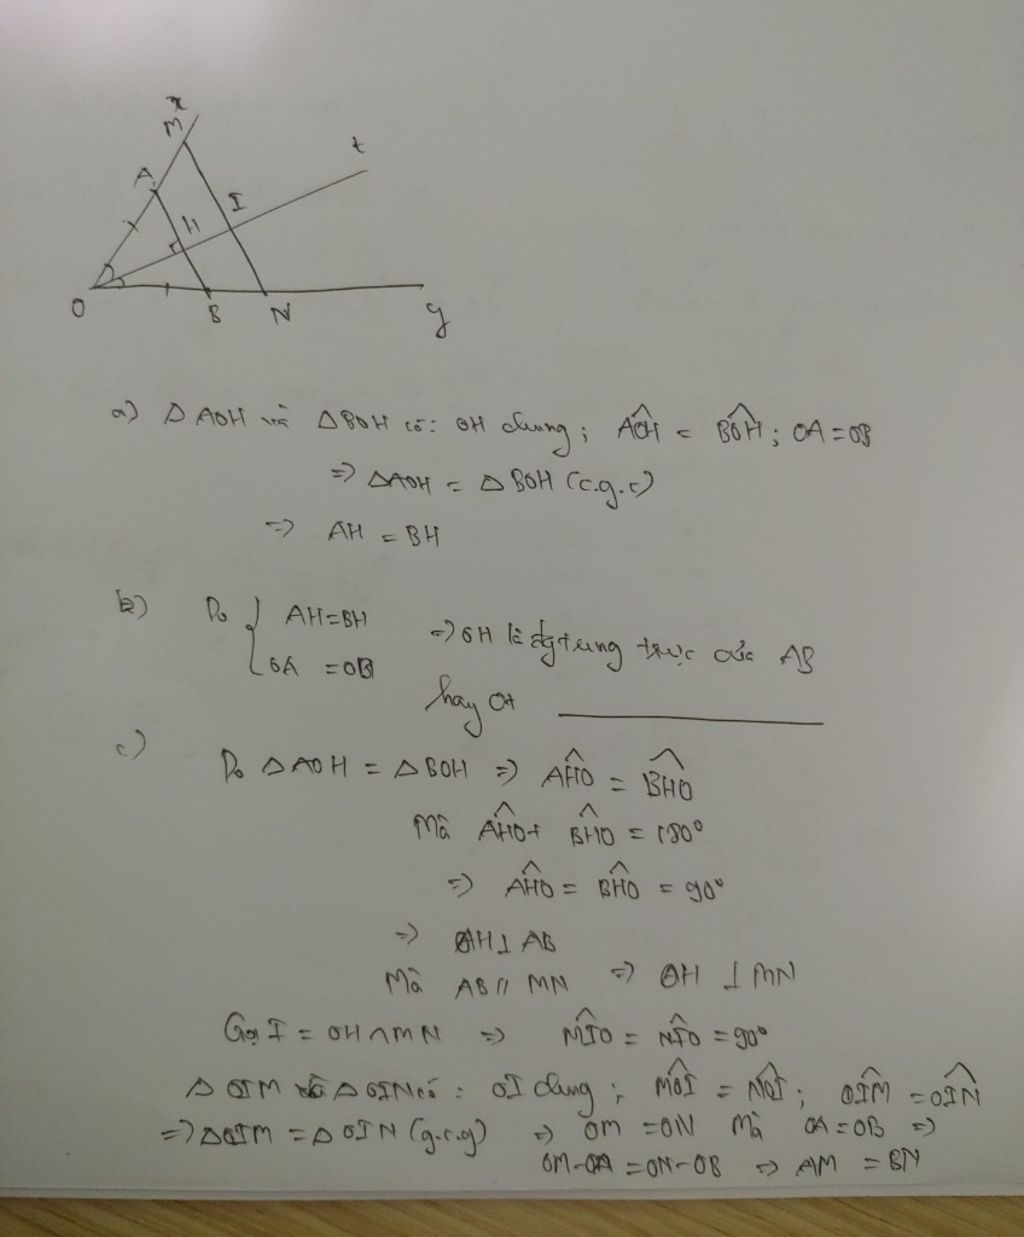 x
M
t
A
I
H
O
B
N
y
a) Δ AOH và Δ BOH có: OH chung; AÔH = BÔH; OA = OB
=> ΔAOH = Δ BOH (c.g.c)
=> AH = BH
b) Do { AH = BH
OA = OB => OH là đg trung trực của AB
hay Ot ________
c) Do Δ AOH = Δ BOH => AĤO = BĤO
Mà AĤO + BĤO = 180°
=> AĤO = BĤO = 90°
=> OH ⊥ AB
Mà AB // MN => OH ⊥ MN
Gọi I = OH ∩ MN => MÎO = NÎO = 90°
Δ OIM và Δ OIN có: OI chung; MÔI = NÔI; OÎM = OÎN
=> ΔOIM = Δ OIN (g.c.g) => OM = ON Mà OA = OB =>
OM - OA = ON - OB => AM = BN